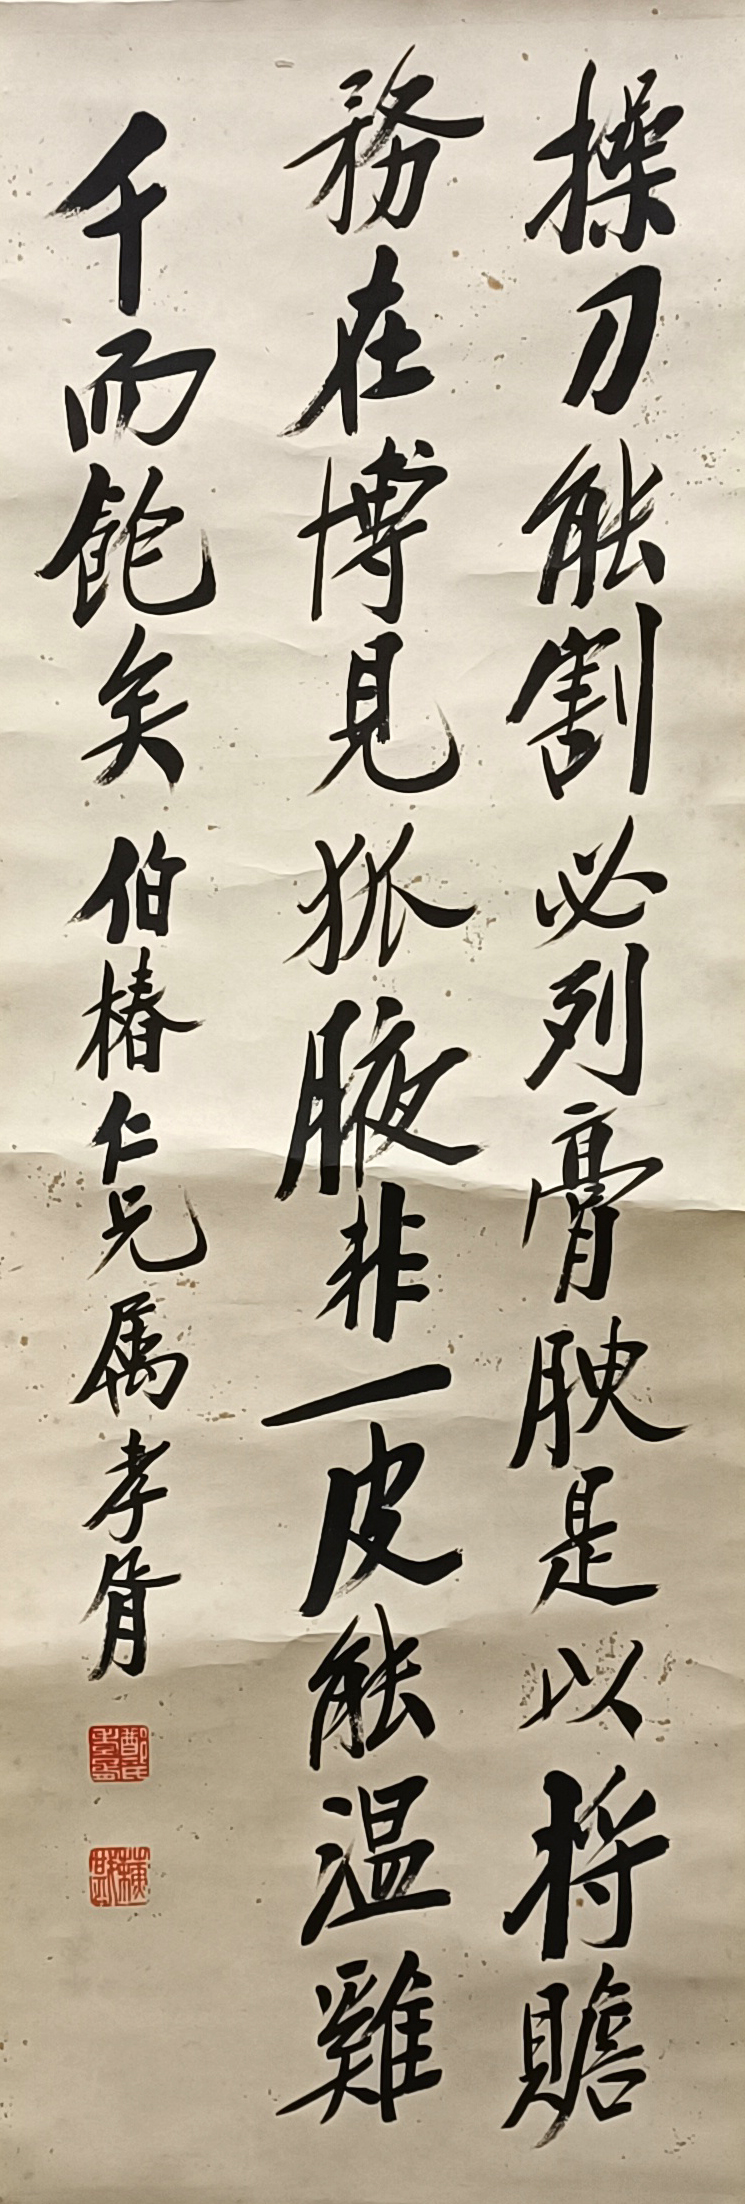 操刀能割必列膏腴是以将贍
務在博見狐腋非一皮能温雞
千而飽矣 伯椿仁兄属 孝胥